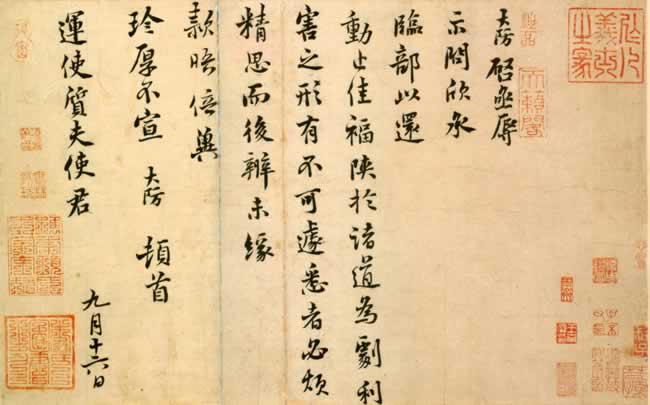 大防啓亟辱
示問欣承
臨部以還
動止佳福陝於諸道為劇利
害之形有不可遽悉者必煩
精思而後辦未緣
款晤倍冀
珍厚不宣 大防 頓首
運使質夫使君
九月十六日